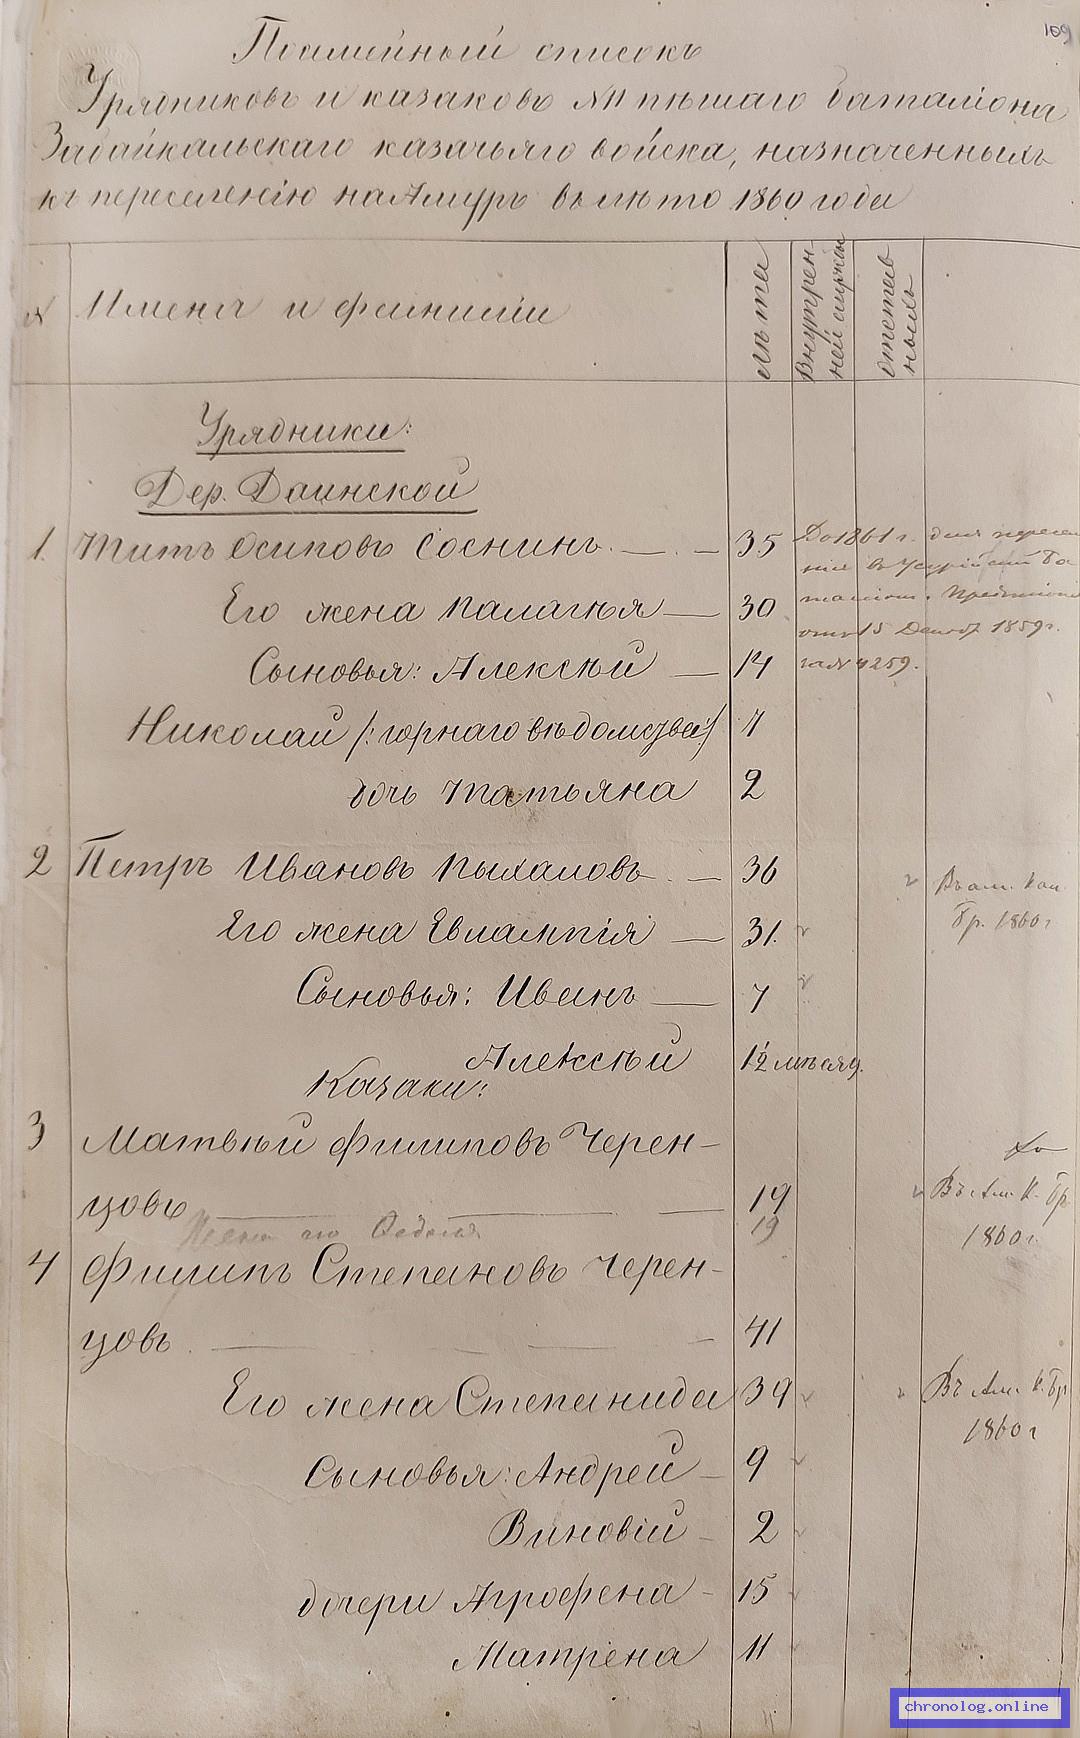 109
Посемейный списокъ
Урядниковъ и казаковъ №11 пѣшаго баталіона
Забайкальскаго казачьяго войска, назначенныхъ
къ переселенію на Амуръ въ лѣто 1860 года
№ Имена и фамиліи
лѣта
Внутрен
ней службы
отстав
ныхъ
Урядники:
Дер. Даинской
1. Титъ Осиповъ Соснинъ. — . — 35
До 1861 г. для пересе
нія въ Усурійскій Ба
таліонъ. Предписаніе
отъ 15 Декаб. 1859 г.
за № 4259.
Его жена Палагѣя — 30
Сыновья: Алексѣй — 14
Николай /: горнаго вѣдомства :/ 4
дочь Татьяна 2
2 Петръ Ивановъ Пыхаловъ . — 36
Въ ам. Кон.
бр. 1860 г
Его жена Евлампія — 31.
Сыновья: Иванъ — 7
Алексѣй 1/2 мѣсяц.
Казаки:
3 Матвѣй Филиповъ Черен-
цовъ — — 19
Въ Ам. К. бр
1860 г.
Жена его Федосья 19
4 Филипъ Степановъ Черен-
цовъ . — — — - 41
Его жена Степанида 39
Въ Ам. К. бр
1860 г
Сыновья: Андрей — 9
Виновій - 2
дочери Агрофена - 15
Матрена 11
chronolog.online